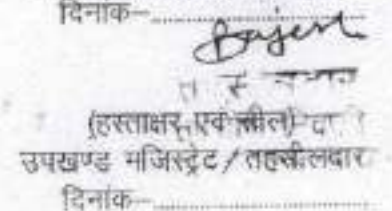 दिनांक–....................
Bajesh
(हस्ताक्षर एवं सील)
उपखण्ड मजिस्ट्रेट/तहसीलदार
दिनांक–....................